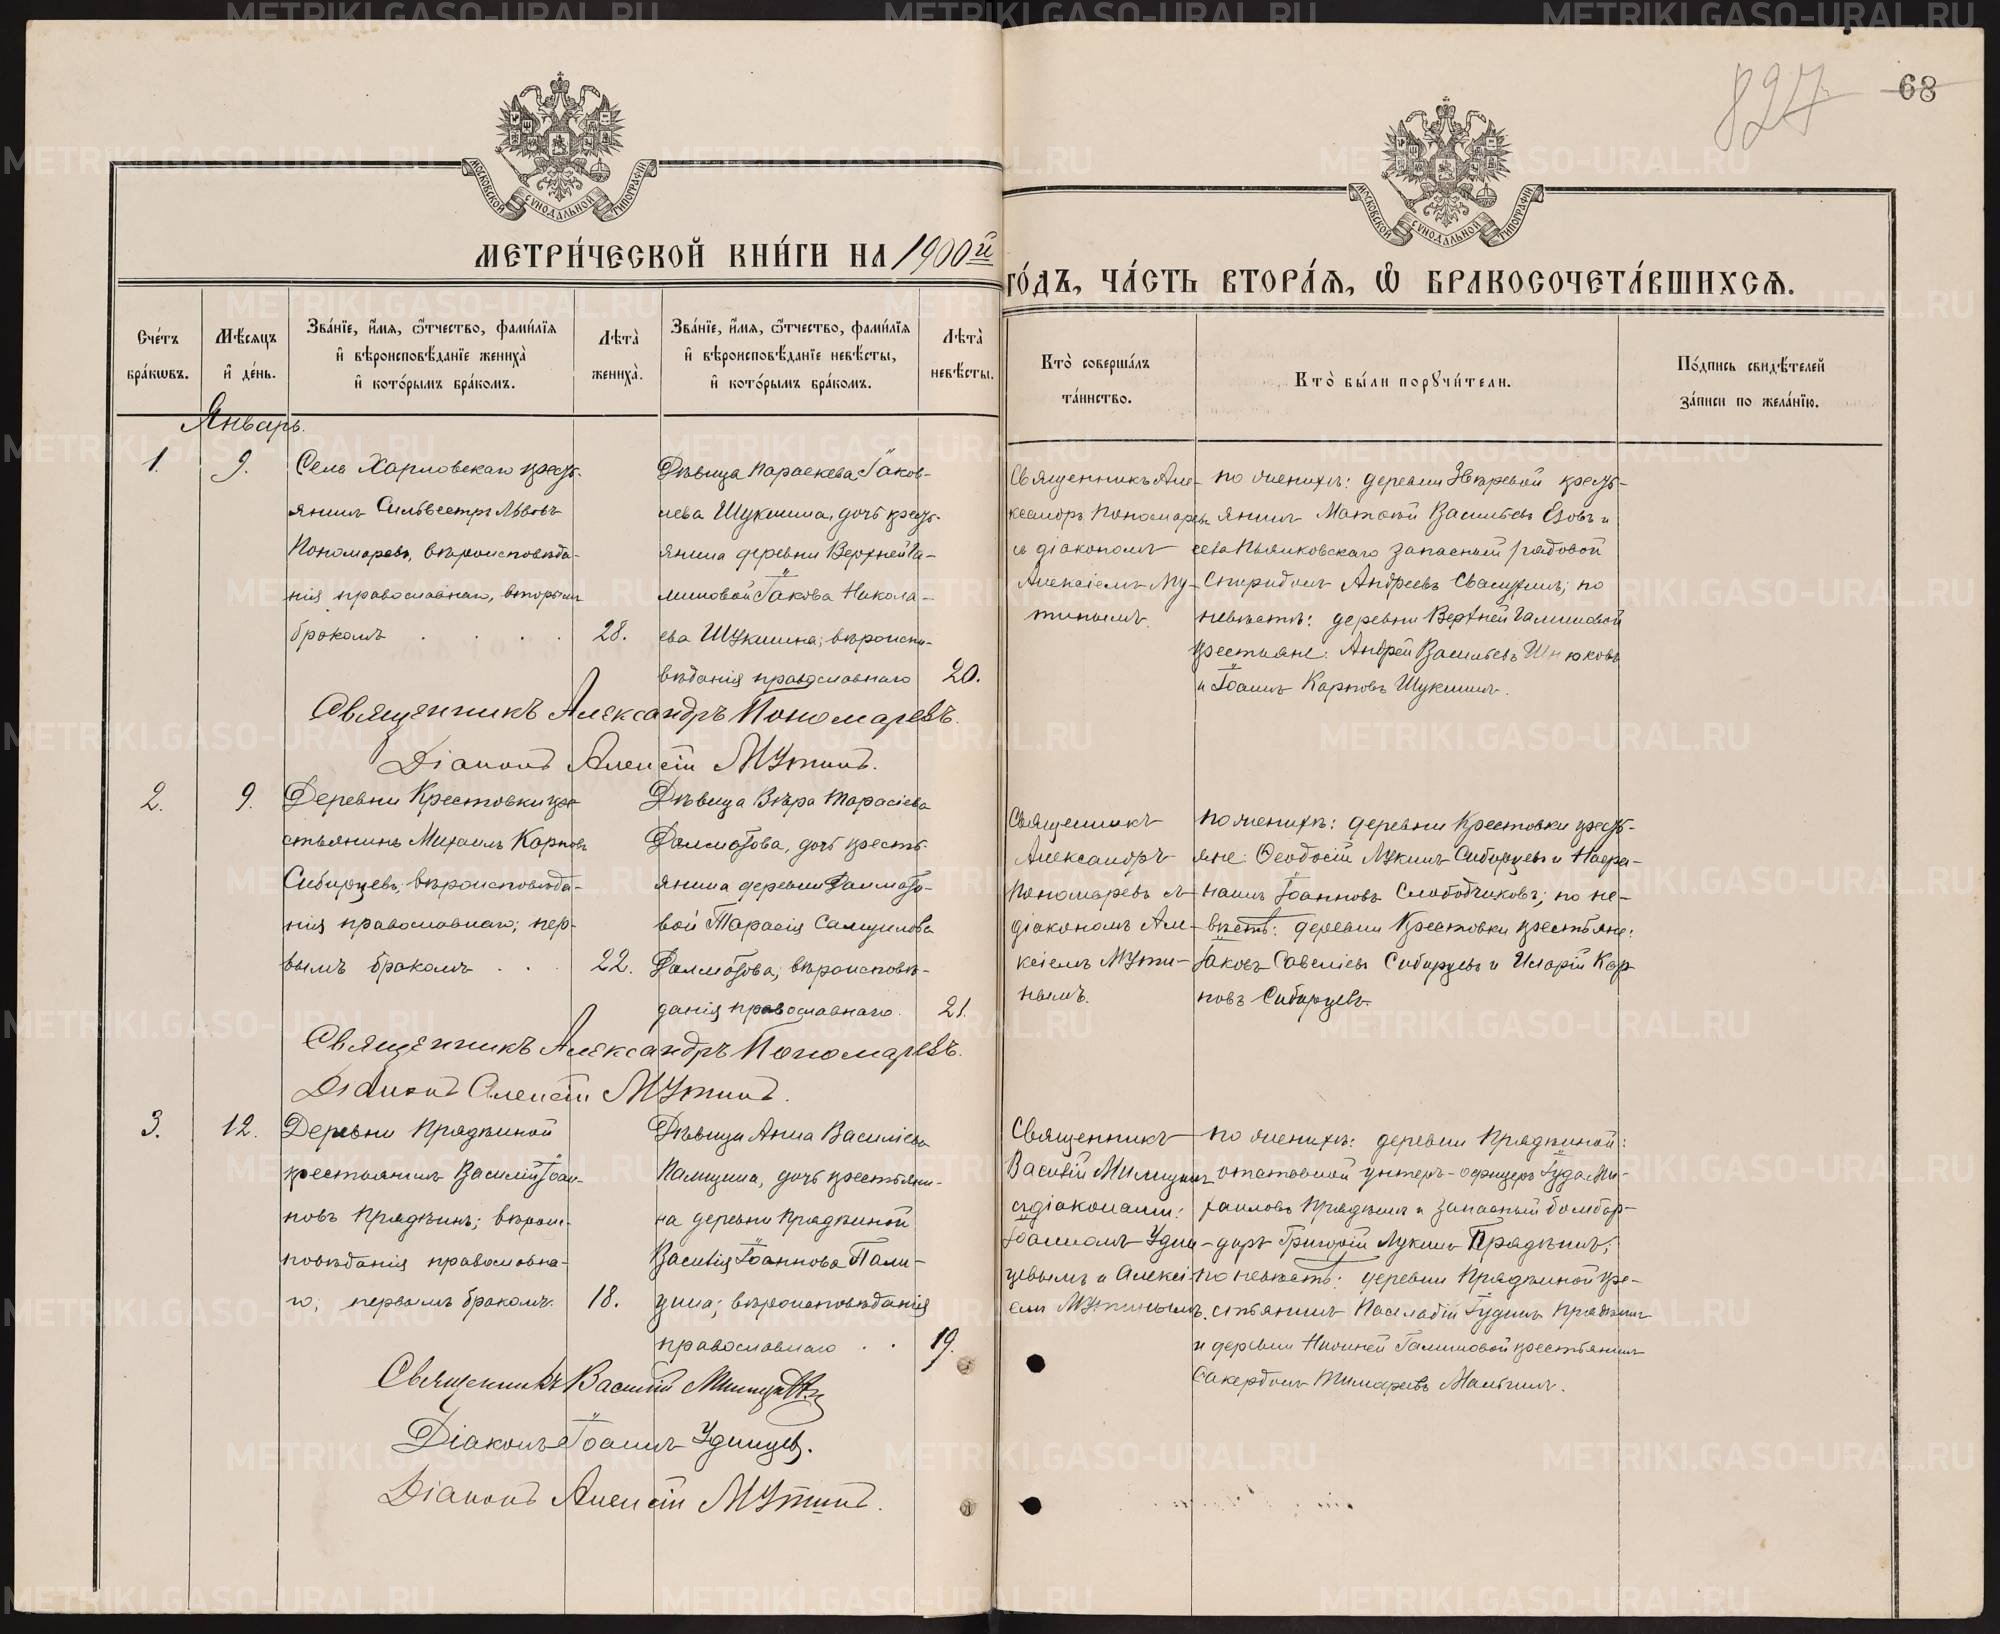 827
68
МОСКОВСКОЙ СѴНОДАЛЬНОЙ ТИПОГРАФІИ
МОСКОВСКОЙ СѴНОДАЛЬНОЙ ТИПОГРАФІИ
МЕТРИ́ЧЕСКОЙ КНИ́ГИ НА 1900й
ГО́ДЪ, ЧА́СТЬ ВТОРА́Ѧ, Ѡ҆ БРАКОСОЧЕТА́ВШИХСѦ.
Сче́тъ бра́кѡвъ.
Мѣ́сяцъ и҆ де́нь.
Зва́нїе, и҆́мя, ѻ҆́тчество, фамилїя
и҆ вѣроисповѣ́данїе жениха̀
и҆ кото́рымъ бра́комъ.
Лѣта̀ жениха̀.
Зва́нїе, и҆́мя, ѻ҆́тчество, фами́лїя
и҆ вѣроисповѣ́данїе невѣ́сты,
и҆ кото́рымъ бра́комъ.
Лѣта̀ невѣ́сты.
Кто̀ соверша́лъ
та́инство.
Кто̀ бы́ли порꙋчи́тели.
По́дпись свидѣ́телей
за́писи по жела́нїю.
Январь.
1.
9.
Села Харловскаго кресть-
янинъ Сильвестръ Львовъ
Пономаревъ, вѣроисповѣда-
нія православнаго, вторымъ
бракомъ . . . .
28.
Дѣвица Параскева Іаков-
лева Шукшина, дочь кресть-
янина деревни Верхней Га-
линовой Іакова Никола-
ева Шукшина; вѣроиспо-
вѣданія православнаго
20.
Священникъ Але-
ксандръ Пономаревъ
съ діакономъ
Алексіемъ Му-
тинымъ.
по женихѣ: деревни Звѣревой кресть-
янинъ Матѳей Васильевъ Езовъ и
села Пьянковскаго запасный рядовой
Спиридонъ Андреевъ по
невѣстѣ: деревни Верхней Галиновой
крестьяне: Андрей Васильевъ Шнюковъ
и Іоаннъ Карповъ Шукшинъ.
Священникъ Александръ Пономаревъ.
Діаконъ Алексій Мутинъ.
2.
9.
Деревни Крестовки кре-
стьянинъ Михаилъ Карповъ
Сибирцевъ; вѣроисповѣда-
нія православнаго; пер-
вымъ бракомъ . . .
22.
Дѣвица Вѣра Тарасіева
Далматова, дочь кресть-
янина деревни Далмато-
вой Тарасія Самуилова
Далматова; вѣроисповѣ-
данія православнаго.
21.
Священникъ
Александръ
Пономаревъ съ
діакономъ Але-
ксіемъ Мути-
нымъ.
по женихѣ: деревни Крестовки кресть-
яне: Ѳеодосій Лукинъ Сибирцевъ и
Іоанновъ Слободчиковъ; по не-
вѣстѣ: деревни Крестовки крестьяне:
Іаковъ Савеліевъ Сибирцевъ и Иларій Кар-
повъ Сибирцевъ.
Священникъ Александръ Пономаревъ.
Діаконъ Алексій Мутинъ.
3.
12.
Деревни Прядѣиной
крестьянинъ Василій Іоан-
новъ Прядѣинъ; вѣроис-
повѣданія православна-
го; первымъ бракомъ.
18.
Дѣвица Анна Василіева
Палицина, дочь крестьяни-
на деревни Прядѣиной
Василія Іоаннова Пали-
цина; вѣроисповѣданія
православнаго . .
19.
Священникъ
Василій Милицинъ
съ діаконами:
Іоанномъ Удин-
цевымъ и Алексі-
емъ Мутинымъ.
по женихѣ: деревни Прядѣиной:
отставной унтеръ-офицеръ Іуда Ми-
хаиловъ Прядѣинъ и запасный бомбар-
диръ Григорій Лукинъ Прядѣинъ;
по невѣстѣ: деревни Прядѣиной кре-
стьянинъ Іудинъ Прядѣинъ
и деревни Нижней Галиновой крестьянинъ
Сакердонъ
Священникъ Василій Милицинъ
Діаконъ Іоаннъ Удинцевъ.
Діаконъ Алексій Мутинъ.
METRIKI.GASO-URAL.RU